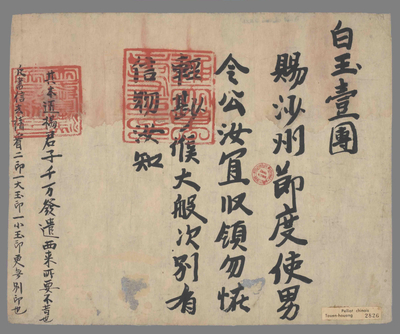 白玉壹團
賜沙州節度使男
令公汝宜収領勿怪
輕尠候大般次別有
信物汝知
其木匠楊君子千万發遣西來所要不苦也
凡書信去請看二印一大玉印一小玉印更無別印也
Pelliot chinois
Touen-houang 2826